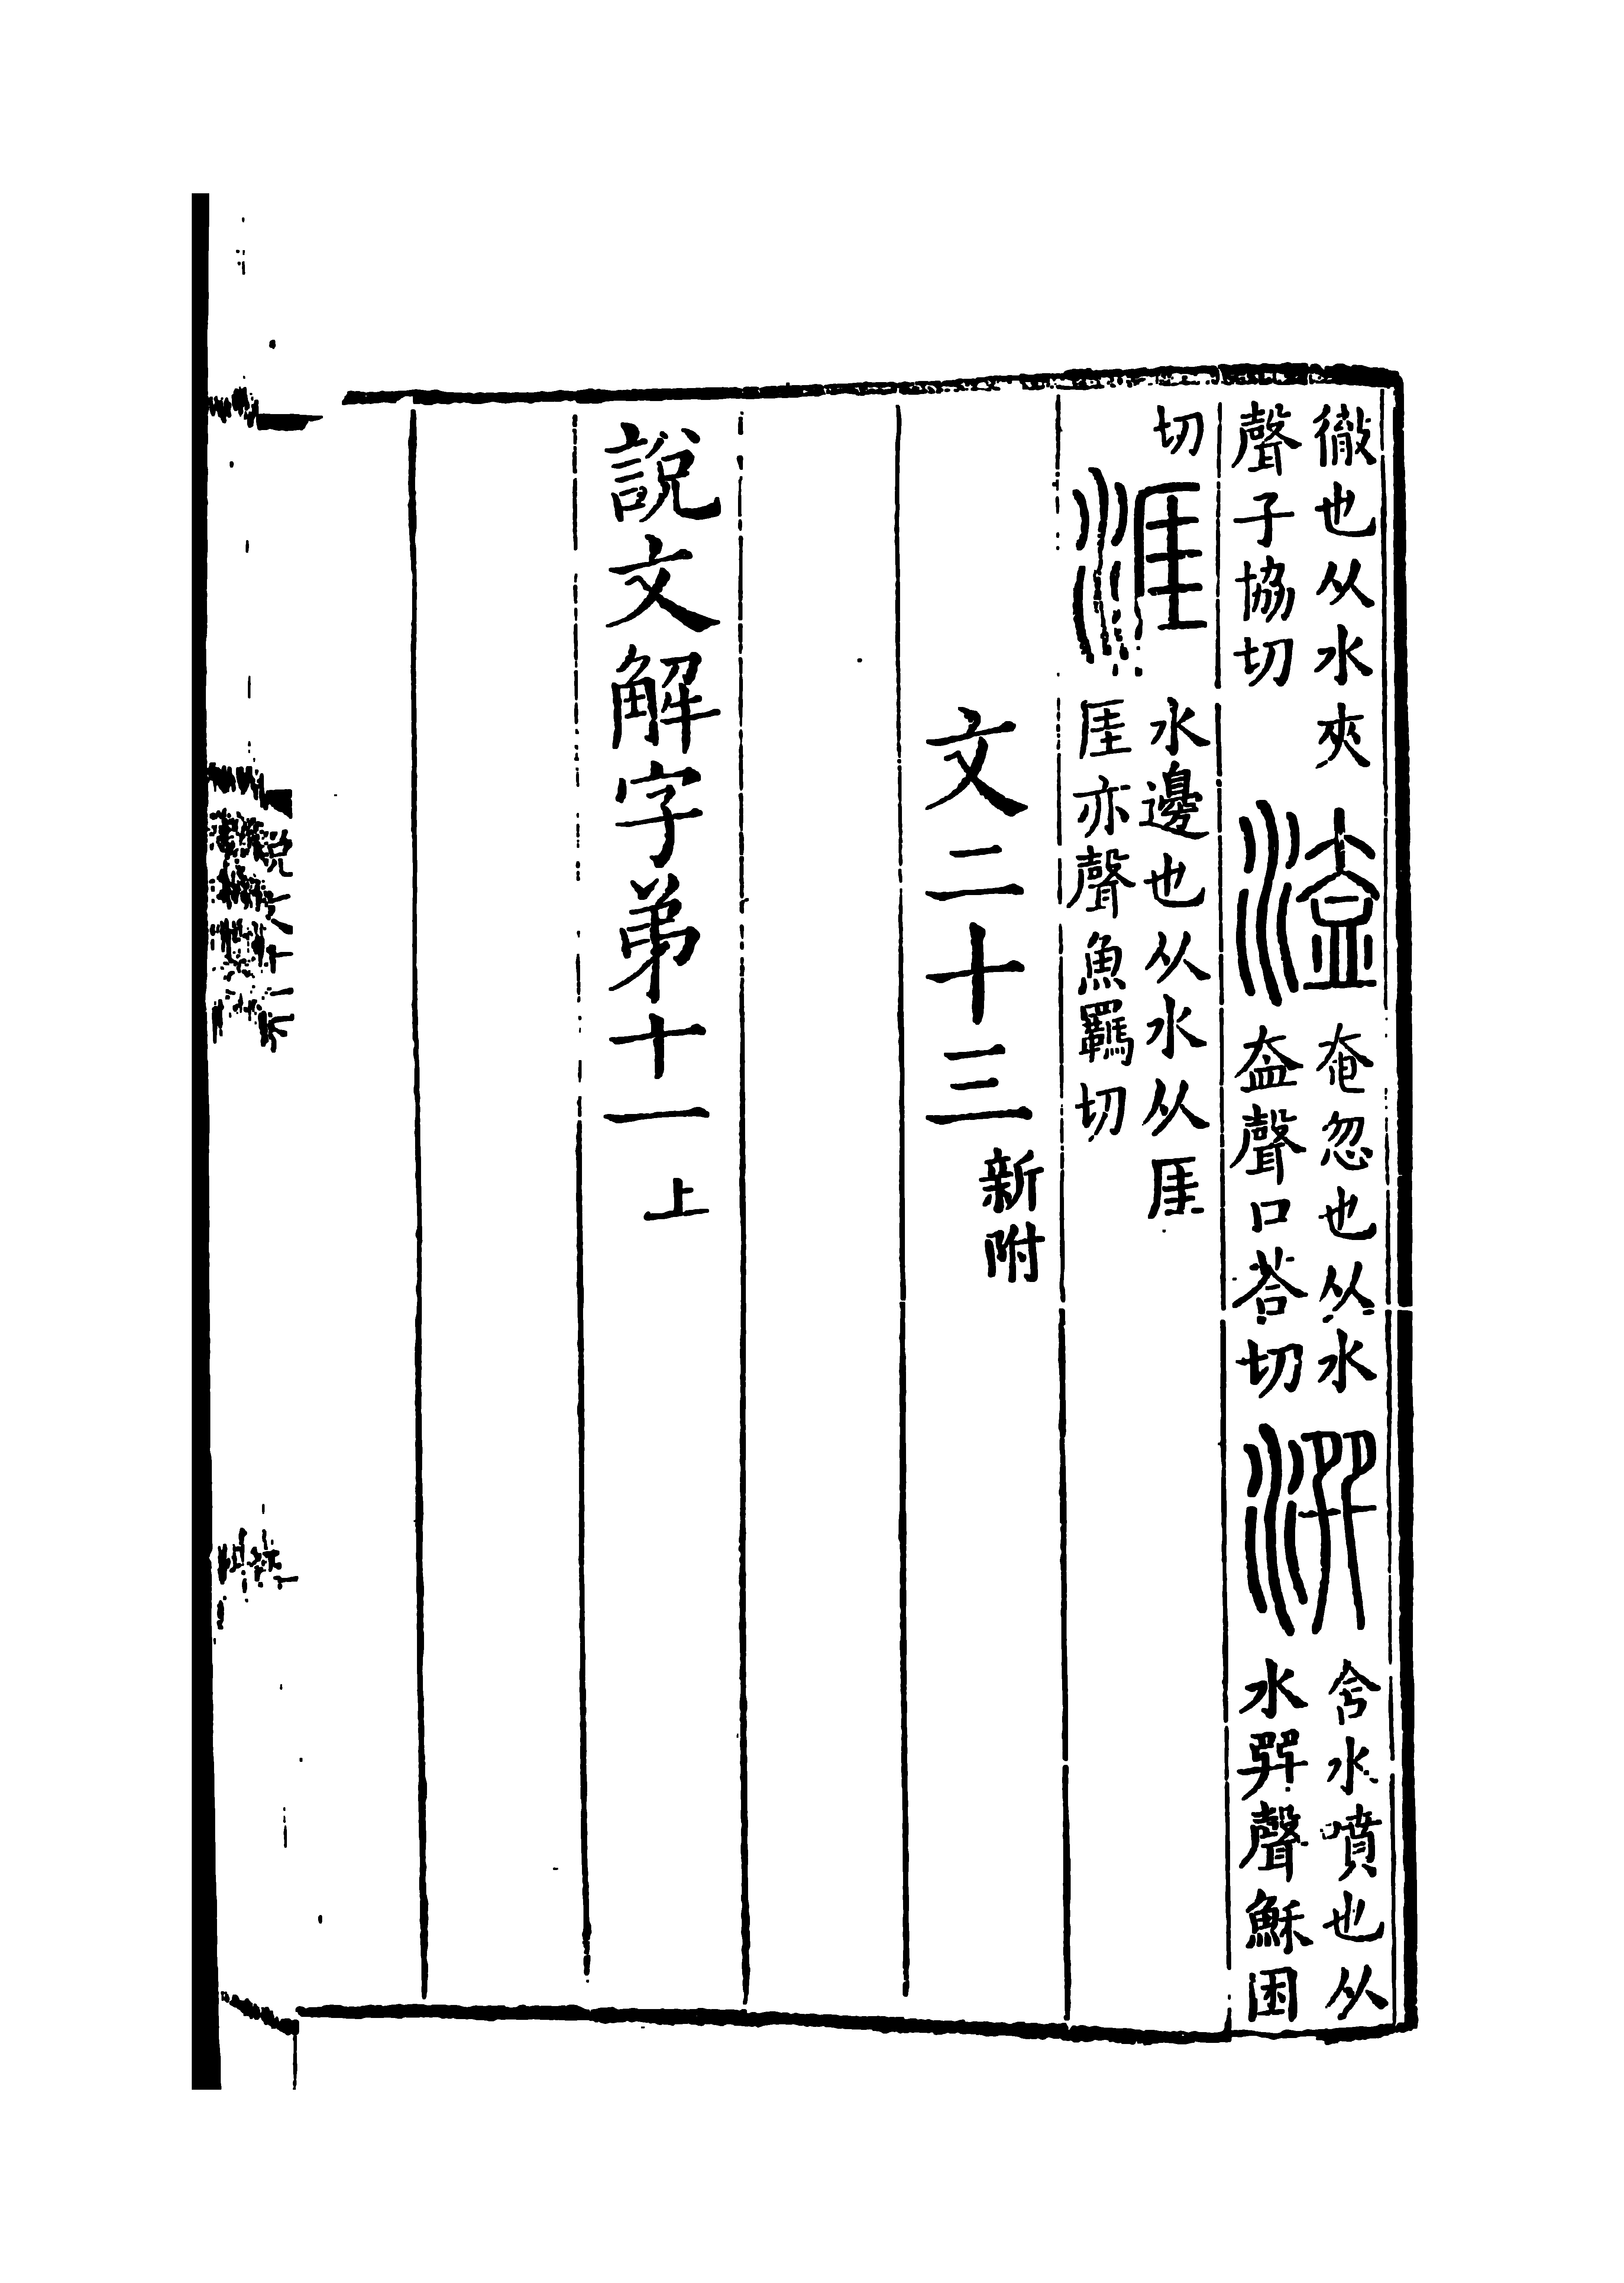 徹也从水夾
聲子協切
溘
奄忽也从水
盇聲口荅切
潠
含水噴也从
水巽聲穌困
切
涯
水邊也从水从厓
厓亦聲魚羈切
文二十三新附
說文解字弟十一上